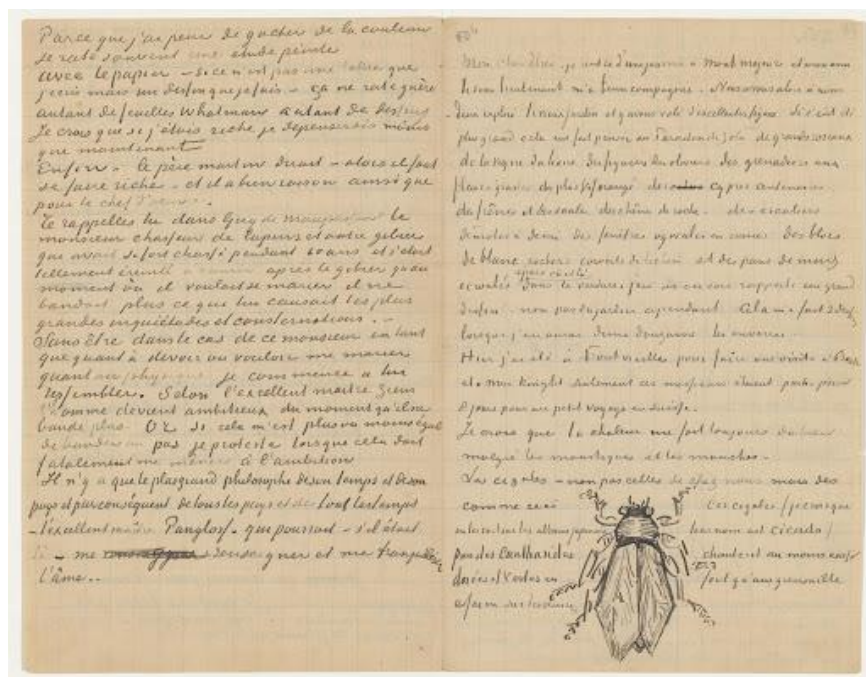 Parce que j'ai peur de gacher de la couleur
je rate souvent une etude peinte
avec le papier – si ce n'est pas une lettre que
j'ecris mais un dessin que je fais – ça ne rate guère
autant de feuilles Whatman autant de dessins
Je crois que si j'étais riche je depenserais moins
que maintenant
Enfin – le père martin dirait – alors il faut
se faire riche – et il a bien raison ainsi que
pour le chef d'œuvre.
Te rappelles tu dans Guy de Maupassant le
monsieur chasseur de lapins et autre gibier
qui avait si fort chassé pendant 10 ans et s'était
tellement éreinté à courir après le gibier qu'au
moment où il voulait se marier il ne
bandait plus ce qui lui causait les plus
grandes inquiétudes et consternations. –
Sans être dans le cas de ce monsieur en tant
que quant à devoir ou vouloir me marier
quant au physique je commence à lui
ressembler. Selon l'excellent maitre Ziem
l'homme devient ambitieux du moment qu'il ne
bande plus. Or si cela m'est plus ou moins égal
de bander ou pas je proteste lorsque cela doit
fatalement me mener à l'ambition
Il n'y a que le plus grand philosophe de son temps et de son
pays et par conséquent de tous les pays et de tout les temps
– l'excellent maître Pangloss – qui pourrait – s'il était
là – me renseigner et me tranquilliser
l'âme..
Mon cher Theo – je rentre d'une journée à Mont majour et mon ami
le sous lieutenant m'a tenu compagnie. Nous avons alors à nous
deux exploré le vieux jardin et y avons volé d'excellentes figues. Si c'eut été
plus grand cela eut fait penser au Paradou de Zola de grands roseaux
de la vigne du lierre des figuiers des oliviers des grenadiers aux
fleurs grasses du plus vif orangé des cyprès centenaires
des frênes et des saules des chênes de roche – des escaliers
démolis à demi des fenêtres ogivales en ruines des blocs
de blanc rocher couverts de lichen et des pans de murs
écroulés épars çà et là dans la verdure j'en ai encore rapporté un grand
dessin. non pas du jardin cependant. Cela me fait 3 dessins
lorsque j'en aurai demi douzaine les enverrai.
Hier j'ai été à Fontvieilles pour faire une visite à Bock
et à MacKnight seulement ces messieurs étaient partis pour
8 jours pour un petit voyage en Suisse.
Je crois que la chaleur me fait toujours du bien
malgré les moustiques et les mouches.
Les cigales – non pas celles de chez nous mais des
comme ceci
on les voit sur les albums japonais
puis des Canthandes
dorées et vertes en
essaim sur les oliviers
Ces cigales /je crois que
leur nom est cicada/
chantent au moins aussi
fort qu'une grenouille